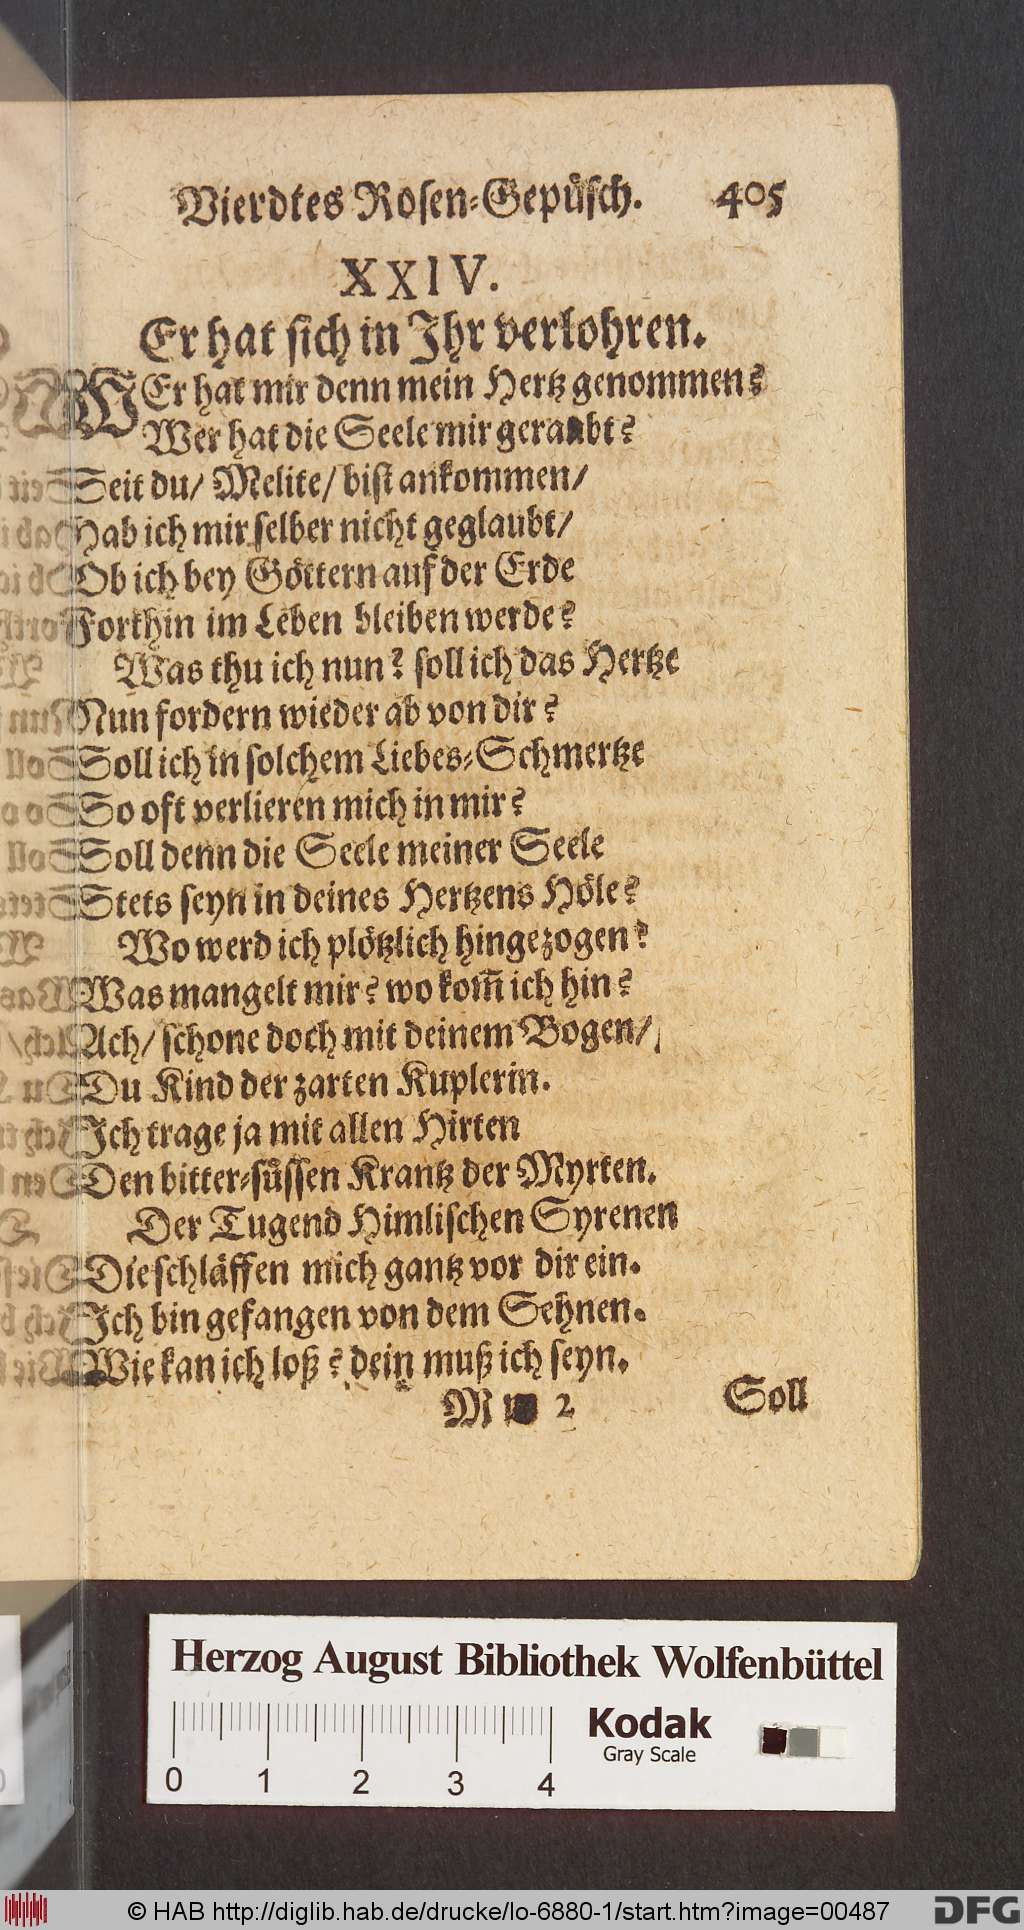 Vierdtes Rosen-Gepüsch. 405
XXIV.
Er hat sich in Ihr verlohren.
WEr hat mir denn mein Hertz genommen?
Wer hat die Seele mir geraubt?
Seit du/ Melite/ bist ankommen/
Hab ich mir selber nicht geglaubt/
Ob ich bey Göttern auf der Erde
Forthin im Leben bleiben werde?
Was thu ich nun? soll ich das Hertze
Nun fordern wieder ab von dir?
Soll ich in solchem Liebes-Schmertze
So oft verlieren mich in mir?
Soll denn die Seele meiner Seele
Stets seyn in deines Hertzens Höle?
Wo werd ich plötzlich hingezogen?
Was mangelt mir? wo kom̃ ich hin?
Ach/ schone doch mit deinem Bogen/
Du Kind der zarten Kuplerin.
Ich trage ja mit allen Hirten
Den bitter-süssen Krantz der Myrten.
Der Tugend Himlischen Syrenen
Die schläffen mich gantz vor dir ein.
Ich bin gefangen von dem Sehnen.
Wie kan ich loß? dein muß ich seyn.
M 2 Soll
Herzog August Bibliothek Wolfenbüttel
0 1 2 3 4
Kodak
Gray Scale
© HAB http://diglib.hab.de/drucke/lo-6880-1/start.htm?image=00487
DFG